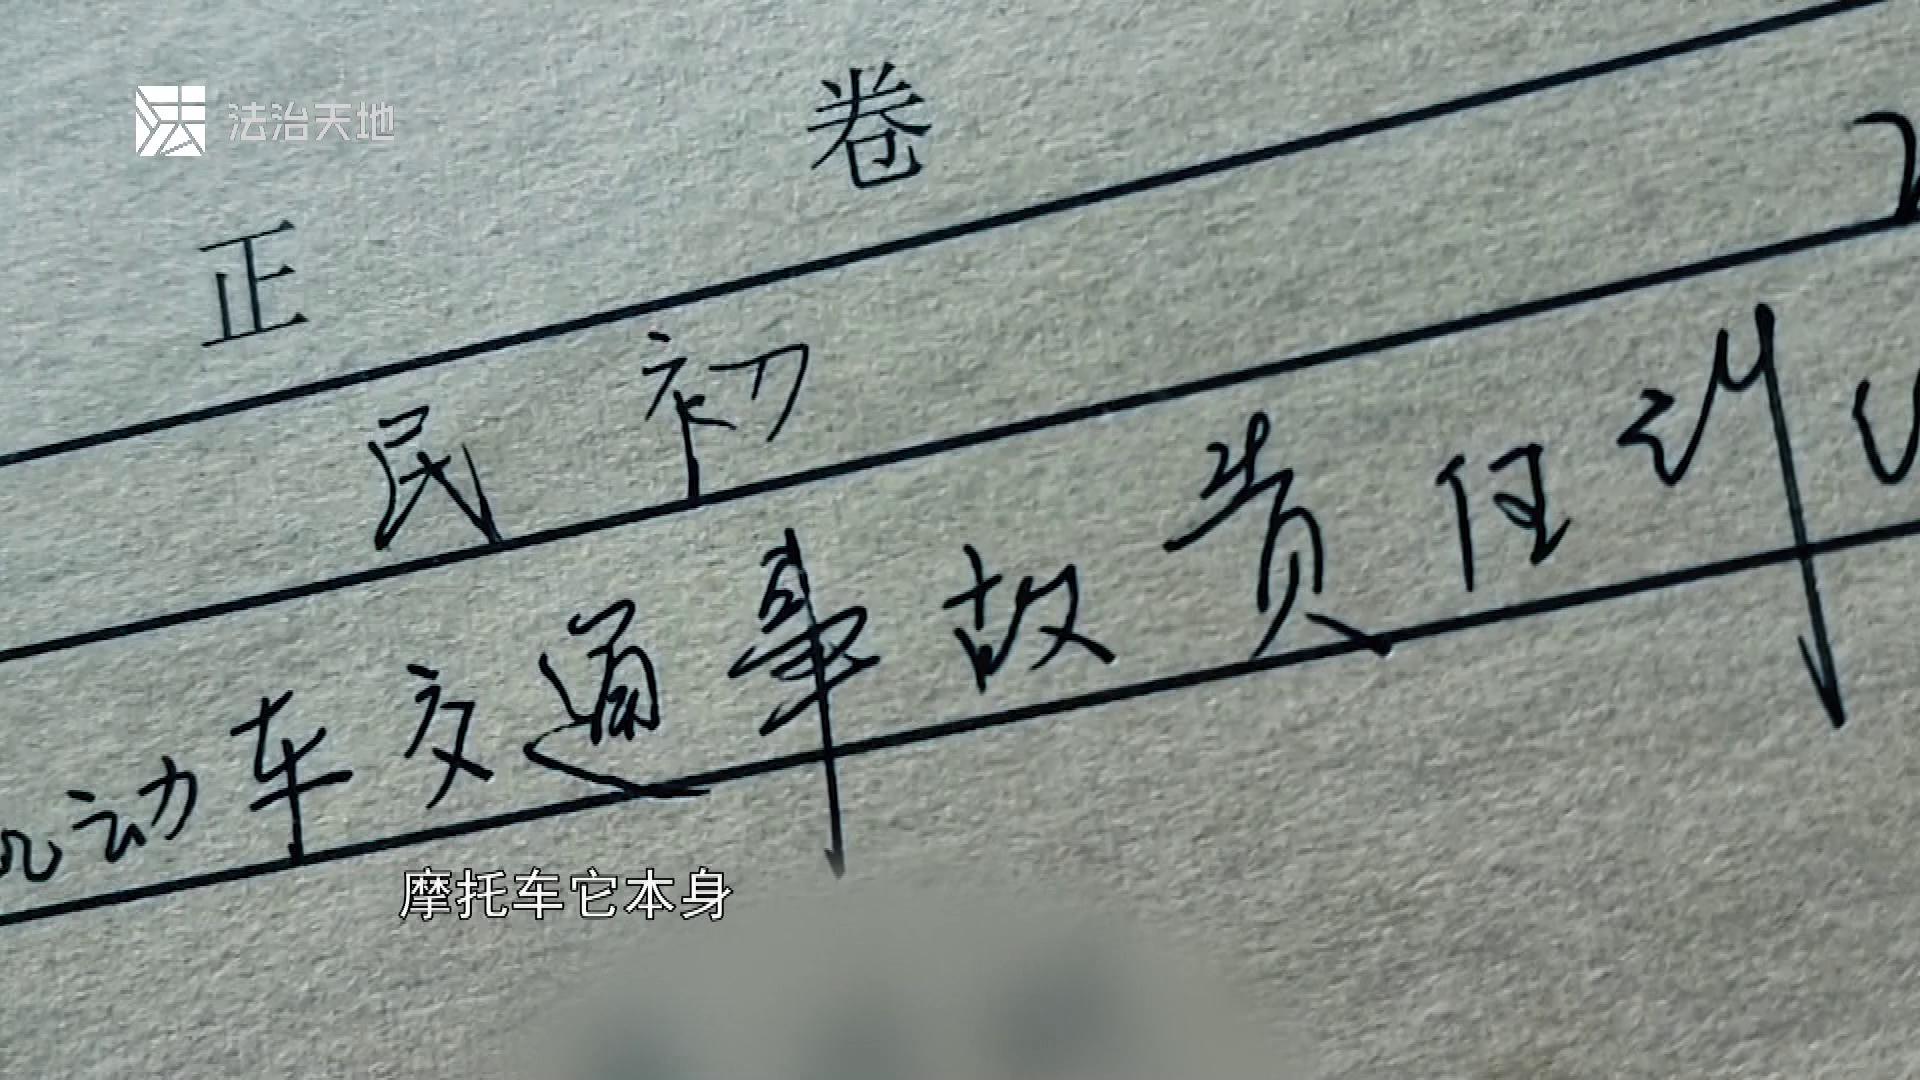 法治天地
正 卷
民初
机动车交通事故责任纠
摩托车它本身